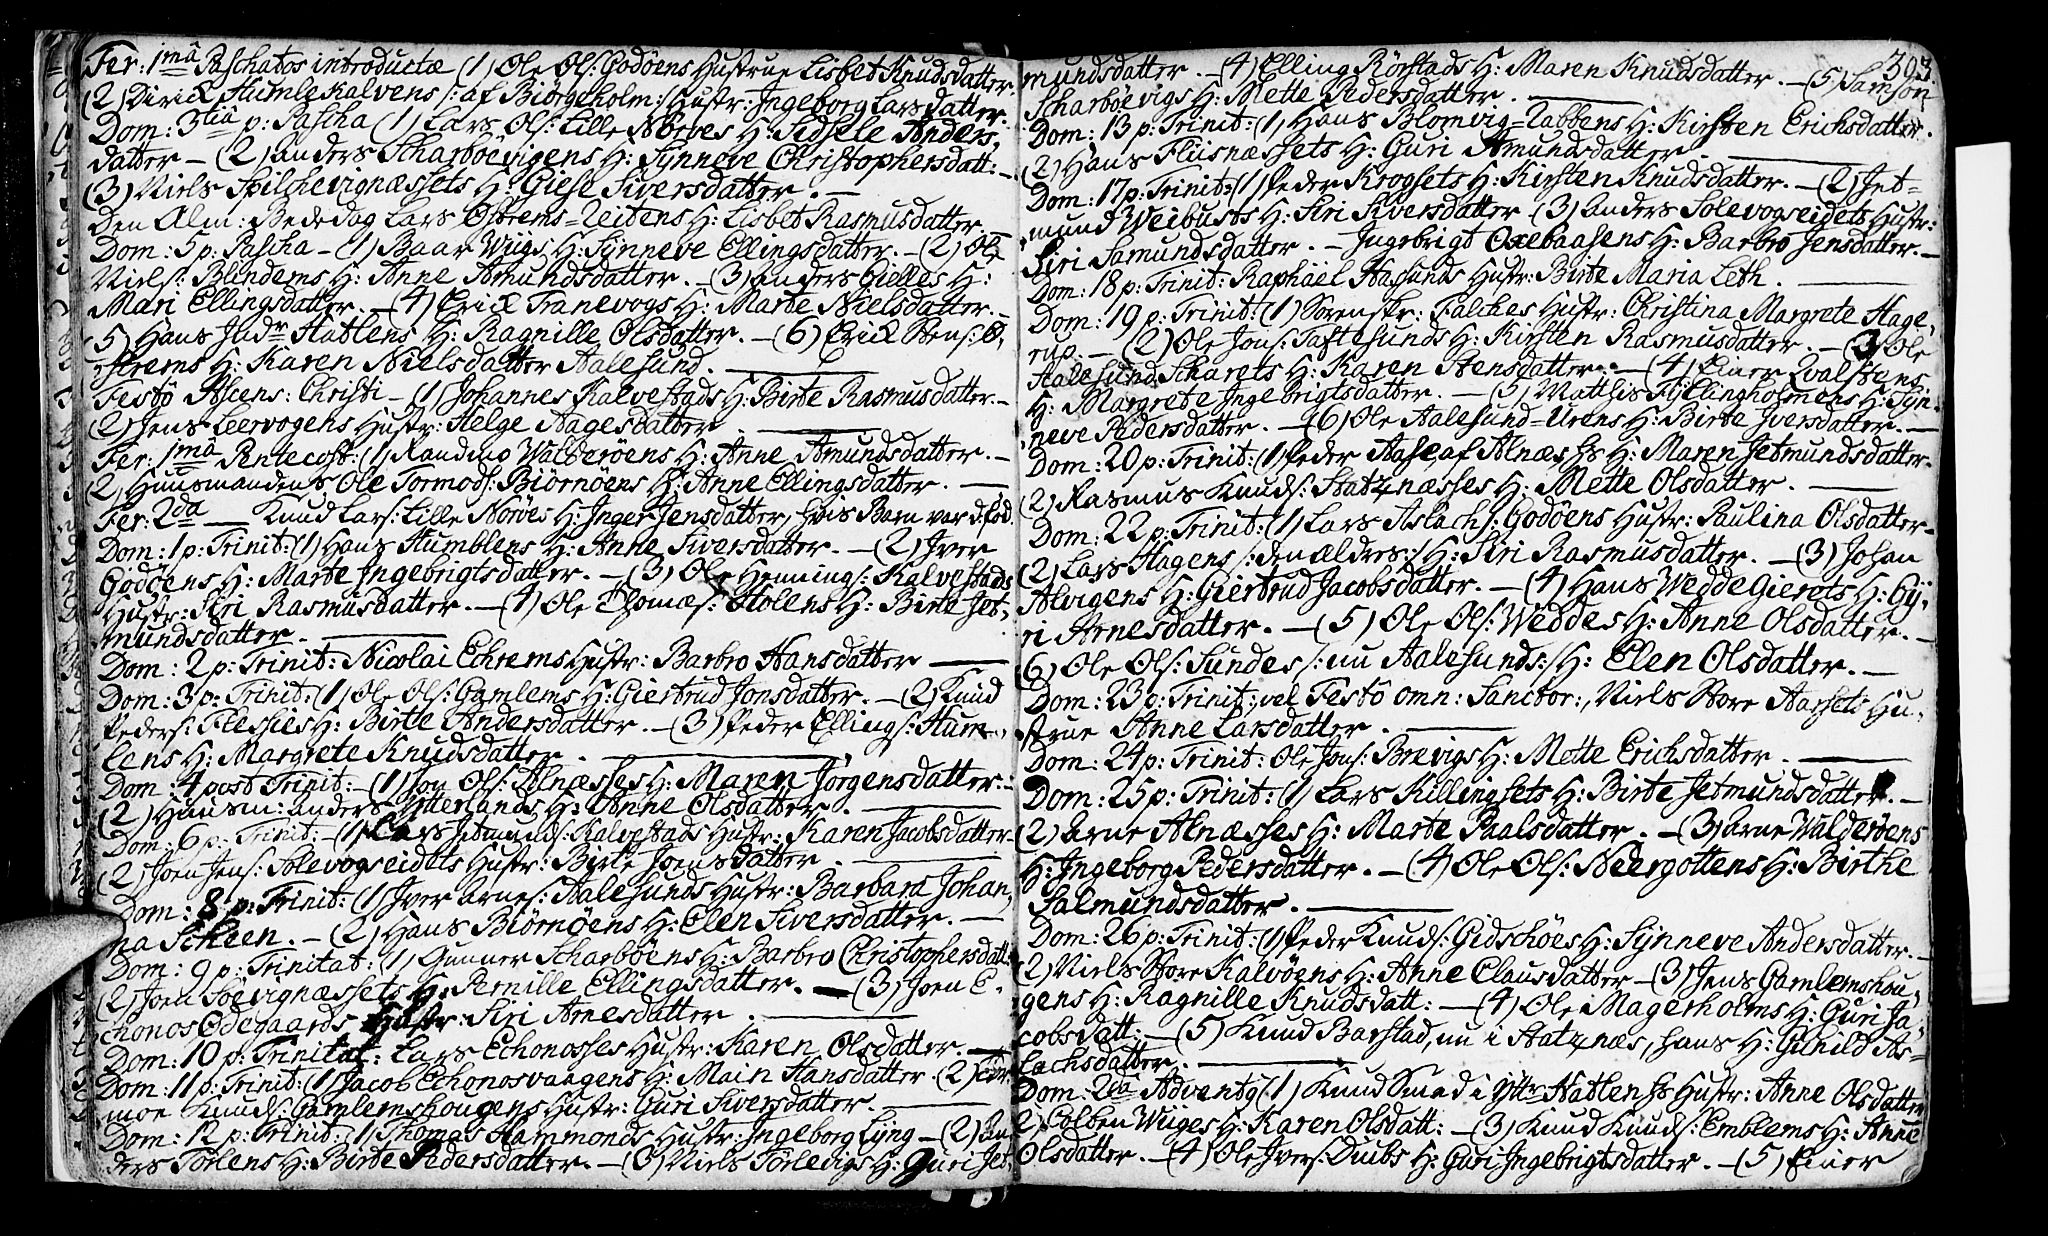 Fer: 1mâ Paschatos introductæ (1) Ole Ols: Godöens Hustrue Lisbet Knudsdatter.
(2) Dirick Humlekalvens /: af Biörgeholm :/ Hustr: Ingeborg Larsdatter.
Dom: 3tiâ p: Pascha (1) Lars Ols: Lille Nörves H: Sidsele Anders,
datter – (2) Anders Scharboevigens H: Synneve Christophersdatt: –
(3) Niels Spilchevignæssets H: Giese Siversdatter. –
Den Alm: Bededag Lars Ostrems-Leitens H: Lisbet Rasmusdatter. –
Dom: 5 p: Pascha – (1) Baar Wiigs H: Synneve Ellingsdatter. – (2) Ole
Niels: Blindems H: Anne Amundsdatter. – (3) Anders Gilles H:
Mari Ellingsdatter. – (4) Erick Tranevogs H: Marte Nielsdatter. –
5) Hans Indr Hatlens H: Ragnille Olsdatter. – (6) Erick Stens: O,
strems H: Karen Nielsdatter Aalesund.
Festô Ascens: Christi – (1) Johannes Kalvestads H: Birte Rasmusdatter. –
(2) Jens Leervogens Hustr: Helge Aagesdatter.
Fer: 1mâ Pentecost: (1) Randino Walderöens H: Anne Amundsdatter. –
2) Huusmandens Ole Tormods: Biörnöens H: Anne Ellingsdatter. –
Fer: 2da – Knud Lars: Lille Nörves H: Inger Jensdatter, hvis Barn var d:fød.
Dom: 1 p: Trinit: (1) Hans Humblens H: Anne Siversdatter. – (2) Iver
Godöens H: Marte Ingebrigtsdatter. – (3) Ole Hennings: Kalvestads
Hustr: Siri Rasmusdatter. – (4) Ole Thomæs: Holens H: Birte Jet-
mundsdatter. –
Dom: 2 p: Trinit: Nicolai Echrems Hustr: Barbro Hansdatter –
Dom: 3 p: Trinit: (1) Ole Ols: Gamlems H: Giertrud Jonsdatter. – (2) Knud
Peders: Flesnes H: Birte Andersdatter. – (3) Peder Ellings: Hum,
lens H: Margrete Knudsdatter.
Dom: 4 post Trinit: – (1) Jon Ols: Alnæsses H: Maren Jörgensdatter: –
(2) Huusm: Anders Ytterlands H: Anne Olsdatter.
Dom: 6 p: Trinit: – (1) Lars Jetmunds: Kalvestads Hustr: Karen Jacobsdatter
(2) Joen Jens: Solevogseidets Hustr: Birte Joensdatter.
Dom: 8 p: Trinit: (1) Iver Arnes: Aalesunds Hustr: Barbara Johan,
na Scheen. – (2) Hans Biörnöens H: Elen Siversdatter. –
Dom: 9 p: Trinitat: (1) Gunner Scharböens H: Barbro Christophersdatt:
(2) Joen Söevignæssets H: Pernille Ellingsdatter. – (3) Joen E-
chonos Ödegaards Hustr: Siri Arnesdatter.
Dom: 10 p: Trinitat: Lars Echonosses Hustr: Karen Olsdatter. –
Dom: 11 p: Trinit: (1) Jacob Echonosvaagens H: Marn Hansdatter. (2) Tor
moe Knuds: Gamlemshougens Hustr: Guri Siversdatter.
Dom: 12 p: Trinit: (1) Thomas Hammonds Hustr: Ingeborg Lyng – (2) An
ders Torlens H: Birte Pedersdatter. – (3) Niels Torlevigs H: Guri Jet,
393.
mundsdatter. – (4) Elling Rörstads H: Maren Knudsdatter. – (5) Samson
Scharböevigs H: Mette Pedersdatter.
Dom: 13 p: Trinit: (1) Hans Blomvig-Tabbens H: Kirsten Erichsdatter.
(2) Hans Fliisnæssets H: Guri Amundsdatter.
Dom: 17 p: Trinit: (1) Peder Krogsets H: Kirsten Knudsdatter. – (2) Jet-
mund Weibusts H: Siri Siversdatter (3) Anders Solevogseidets Hustr:
Siri Samundsdatter. – Ingebrigt Oxebaasens H: Barbro Jensdatter. –
Dom: 18 p: Trinit: Raphäel Haslunds Hustr: Birte Maria Leth.
Dom: 19 p: Trinit: (1) Sorenskr: Falches Hustr: Christina Margrete Hage,
rup. – (2) Ole Jons: Taftesunds H: Kirsten Rasmusdatter. – (3) Ole
Aalesund Scharets H: Karen Stensdatter. – (4) Einer Qvalsteens
H: Margrete Ingebrigtsdatter. – (5) Mattis Fyllingholmens H: Syn-
neve Pedersdatter. – (6) Ole Aalesund-Urens H: Birte Iversdatter. –
Dom: 20 p: Trinit: (1) Peder Aase, af Alnæs hs H: Maren Jetmundsdatter.
(2) Rasmus Knuds: Hatznæsses H: Mette Olsdatter.
Dom: 22 p: Trinit: (1) Lars Aslach: Godöens Hustr: Paulina Olsdatter –
(2) Lars Hagens /: den ældres :/ H: Siri Rasmusdatter. – (3) Johan
Alvigens H: Giertrud Jacobsdatter. – (4) Hans Weddegierets H: Gy,
ri Arnesdatter. – (5) Ole Ols: Weddes H: Anne Olsdatter. –
(6) Ole Ols: Sundes /: nu Aalesunds :/ H: Elen Olsdatter. –
Dom: 23 p: Trinit: vel Festô omn: Sanctor:, Niels Store Aarsets Hu,
strue Anne Larsdatter.
Dom: 24 p: Trinit: Ole Jons: Brevigs H: Mette Erichsdatter.
Dom: 25 p: Trinit: (1) Lars Killingsets H: Birte Jetmundsdatter. –
(2) Arne Alnæsses H: Marte Paalsdatter. – (3) Arne Walderöens
H: Ingeborg Pedersdatter. – (4) Ole Ols: Neergottens H: Birthe
Salmundsdatter.
Dom: 26 p: Trinit: (1) Peder Knuds: Gidschöes H: Synneve Andersdatter. –
2) Niels Store Kalvöens H: Anne Clausdatter – (3) Jens Gamlemshou,
gens H: Ragnille Knudsdatt: – (4) Ole Magerholms H: Guri Ja,
cobsdatt: – (5) Knud Barstad, nu i Hatznæs, hans H: Gunild As-
lachsdatter.
Dom: 2da Adventus (1) Knud Smed i Yttr Hatlen hs Hustr: Anne Olsdatter
2) Colben Wiiges H: Karen Olsdatt: – (3) Knud Knuds: Emblems H: Anne
Olsdatter. – (4) Ole Ivers: Duibs H: Guri Ingebrigtsdatter. – (5) Einer